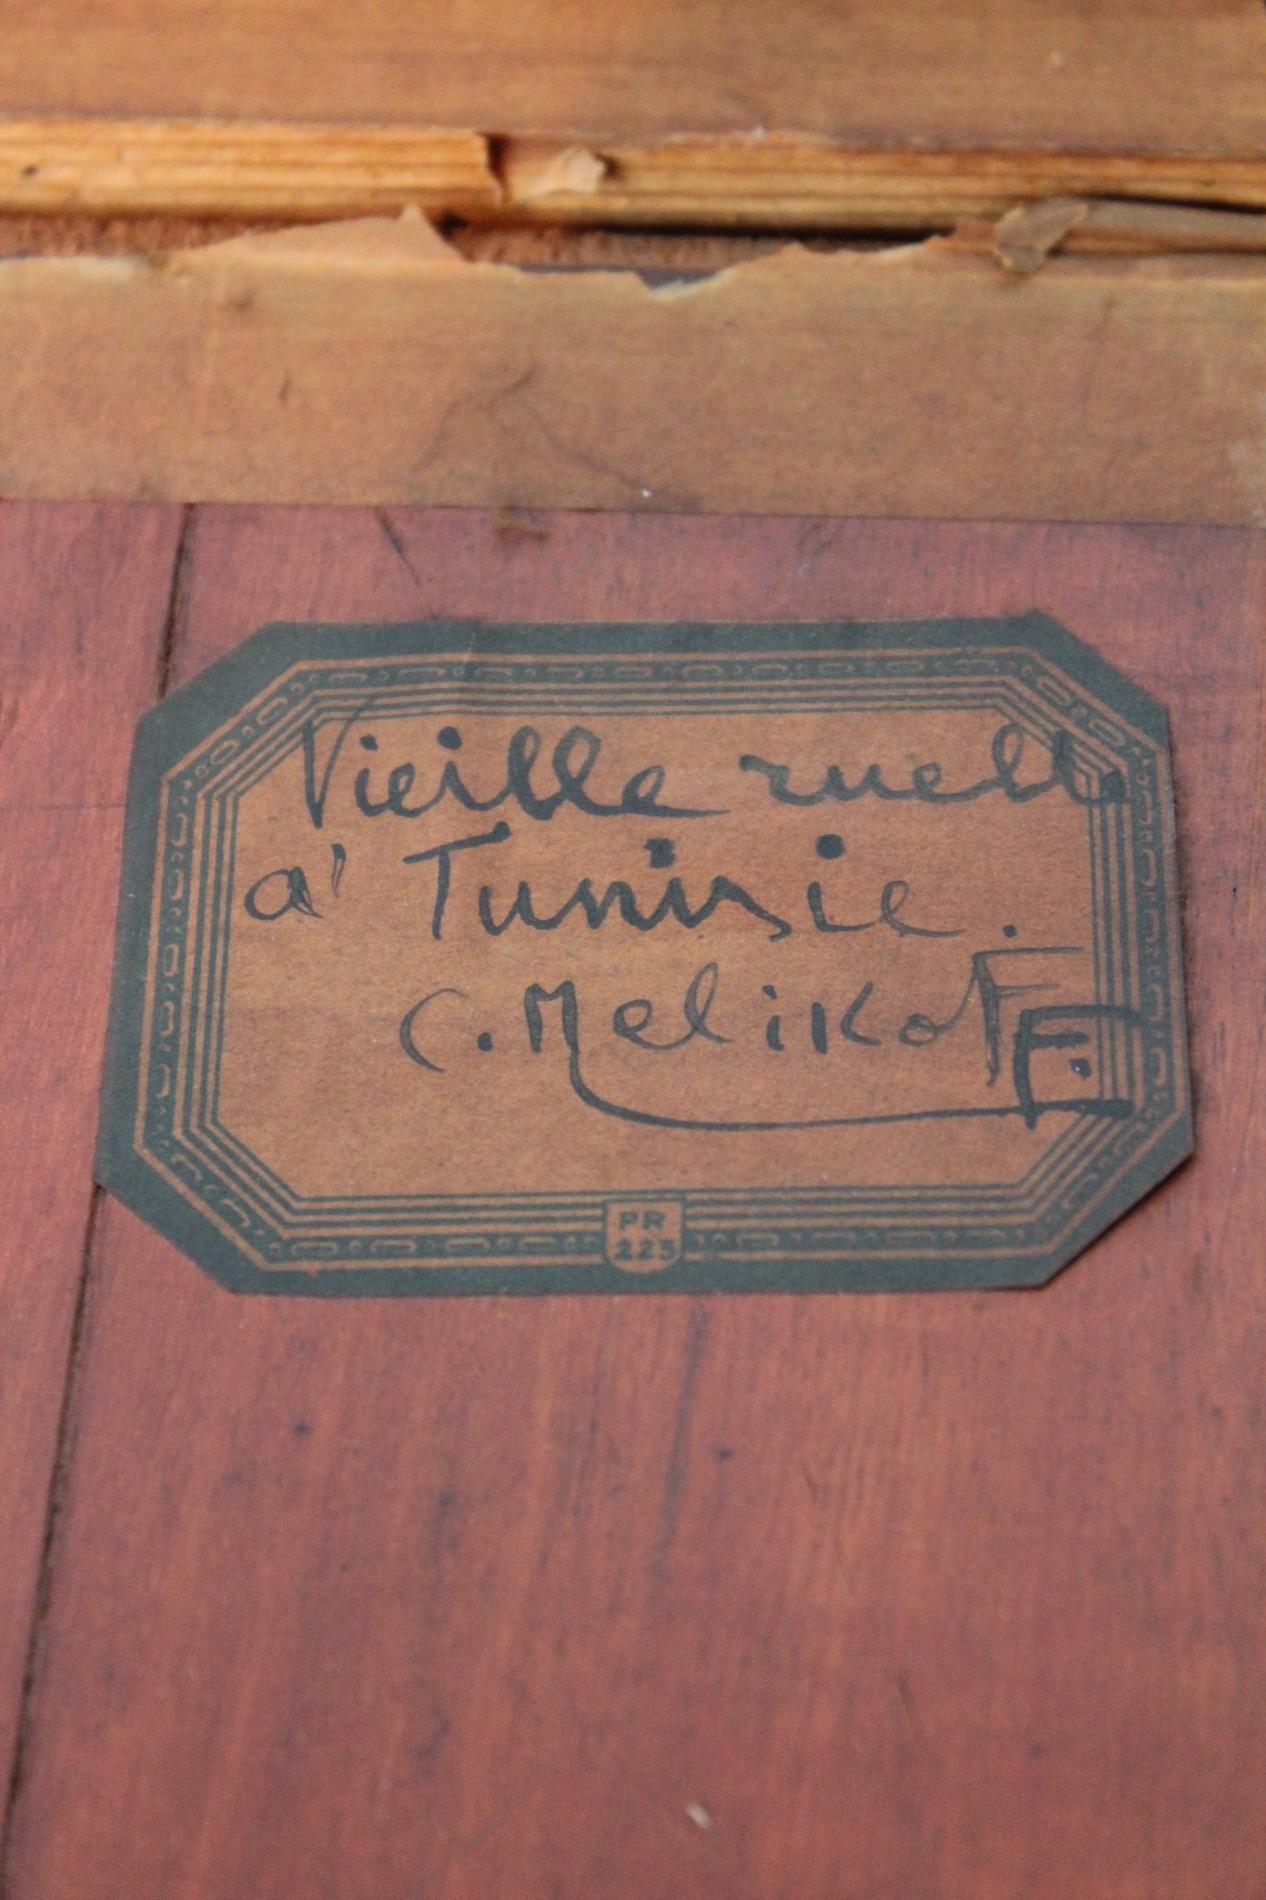 Vieille ruelle
a' Tunisie.
C. MelikoFF.
PR
225